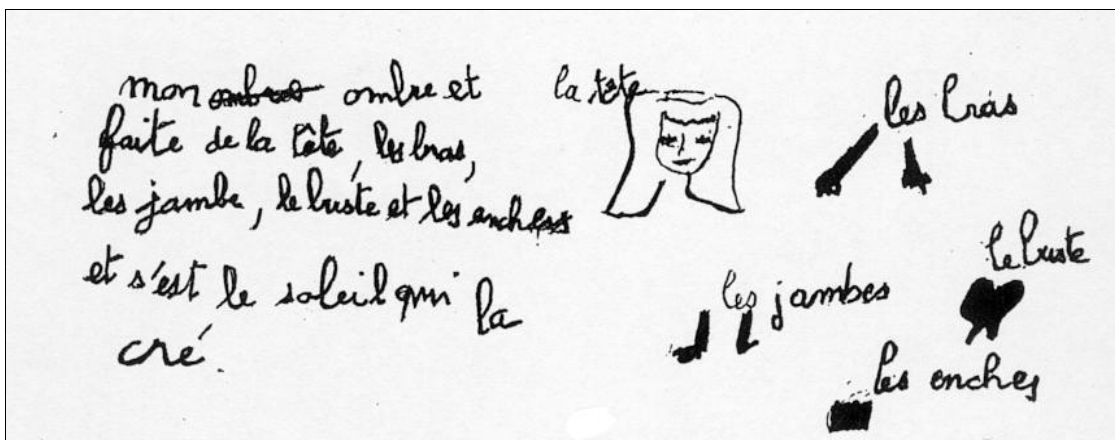 mon ombre ombre et
faite de la tête, les bras,
les jambe, le buste et les enches
et s'est le soleil qui la
cré.
la tête
les bras
le buste
les jambes
les enches